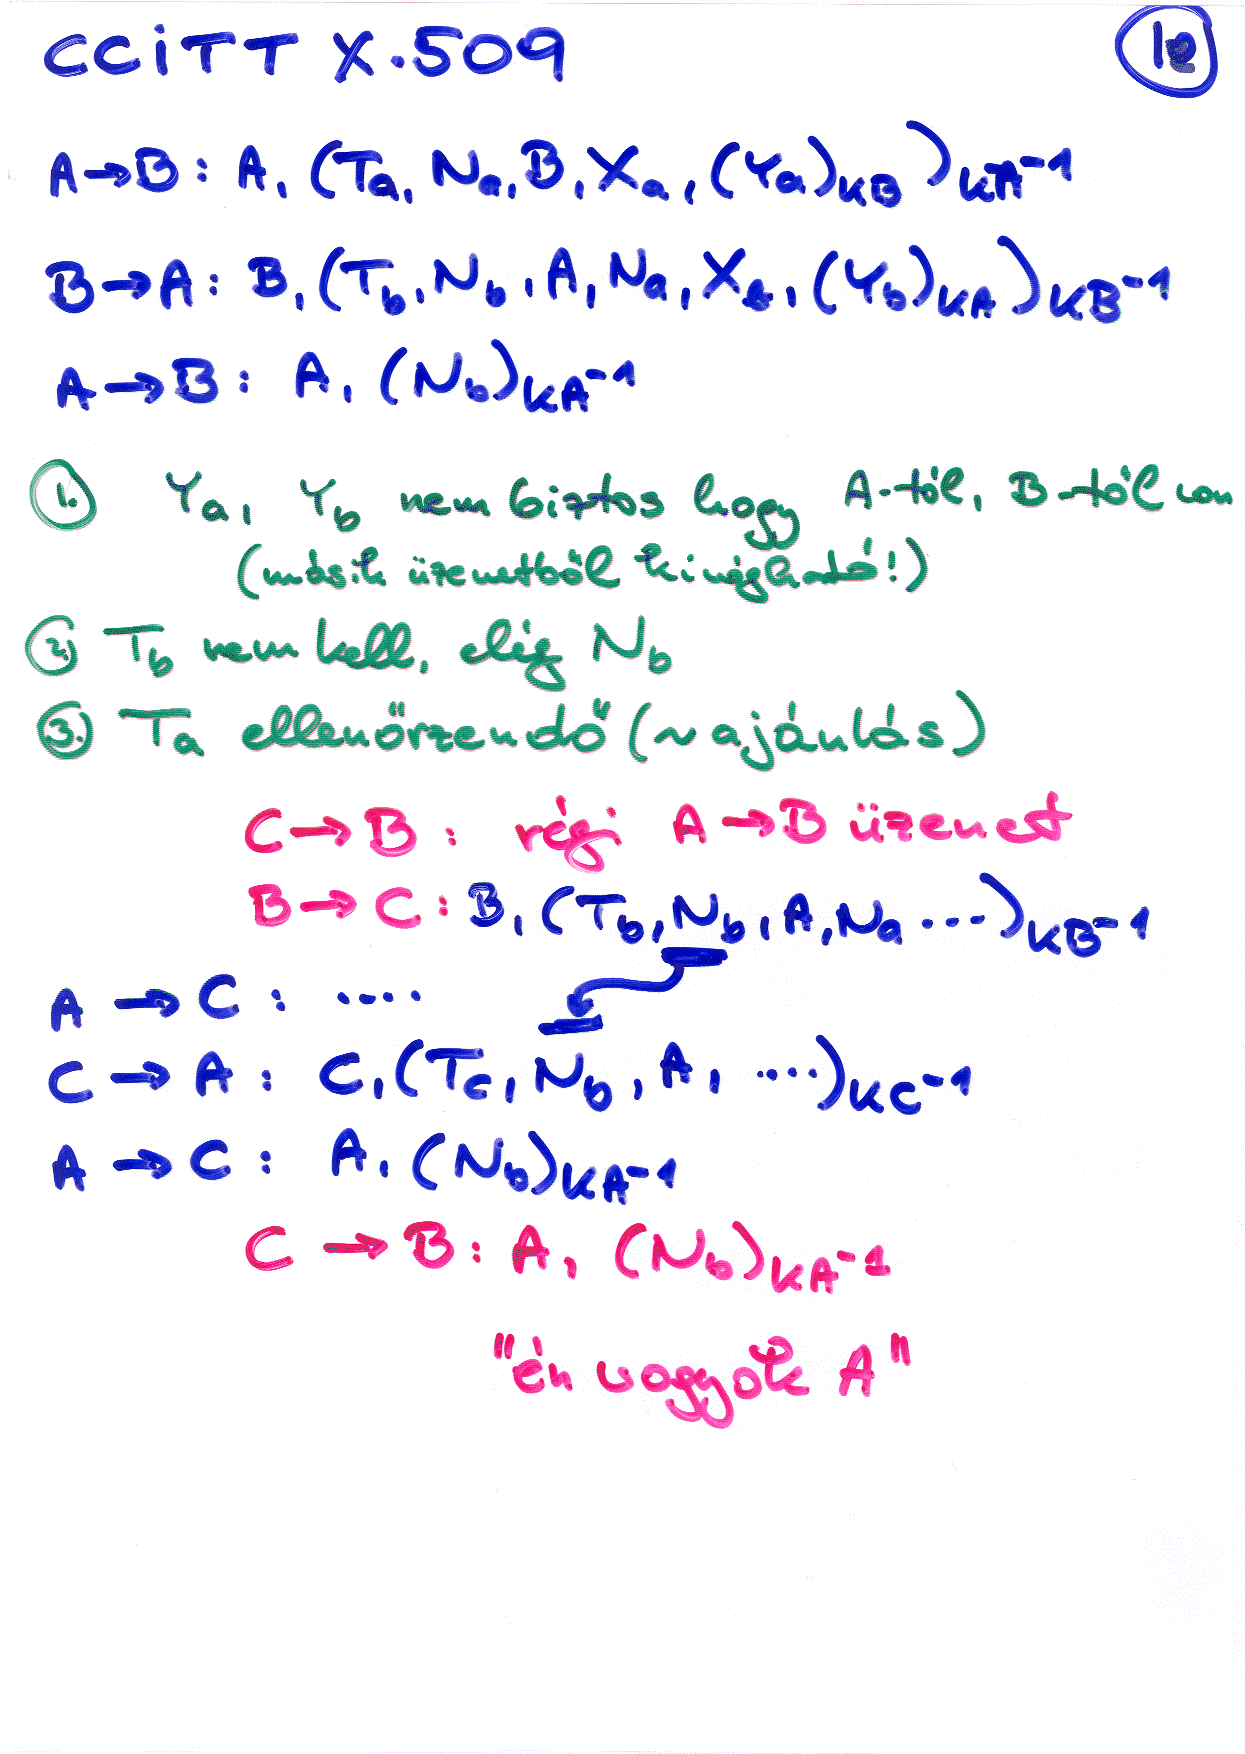 CCiTT X.509
12
A→B: A, (Ta, Na, B, Xa, (Ya)KB)KA⁻¹
B→A: B, (Tb, Nb, A, Na, Xb, (Yb)KA)KB⁻¹
A→B: A, (Nb)KA⁻¹
1. Ya, Yb nem biztos hogy A-tól, B-től van
(másik üzenetből kivágható!)
2. Tb nem kell, elég Nb
3. Ta ellenőrzendő (~ajánlás)
C→B: régi A→B üzenet
B→C: B, (Tb, Nb, A, Na ...)KB⁻¹
A→C: ....
C→A: C, (Tc, Nb, A, ....)KC⁻¹
A→C: A, (Nb)KA⁻¹
C→B: A, (Nb)KA⁻¹
"én vagyok A"